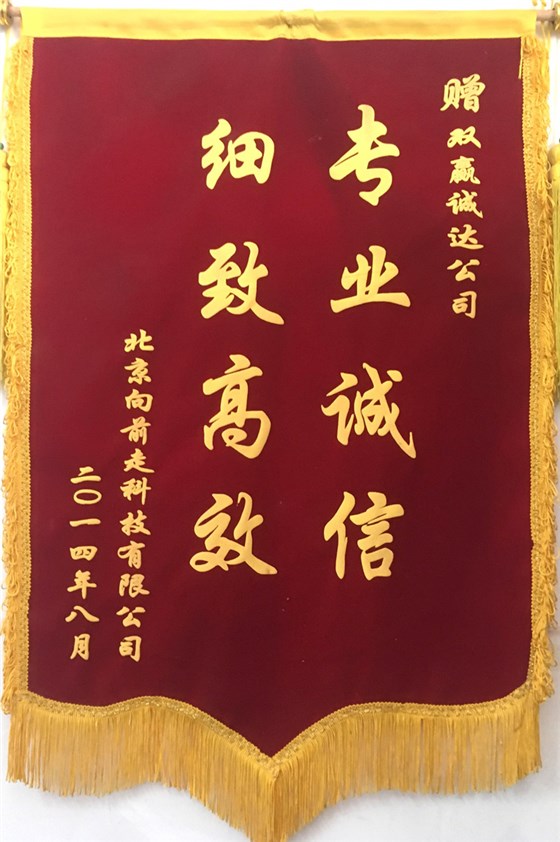 赠双赢诚达公司
专业诚信
细致高效
北京向前走科技有限公司
二〇一四年八月